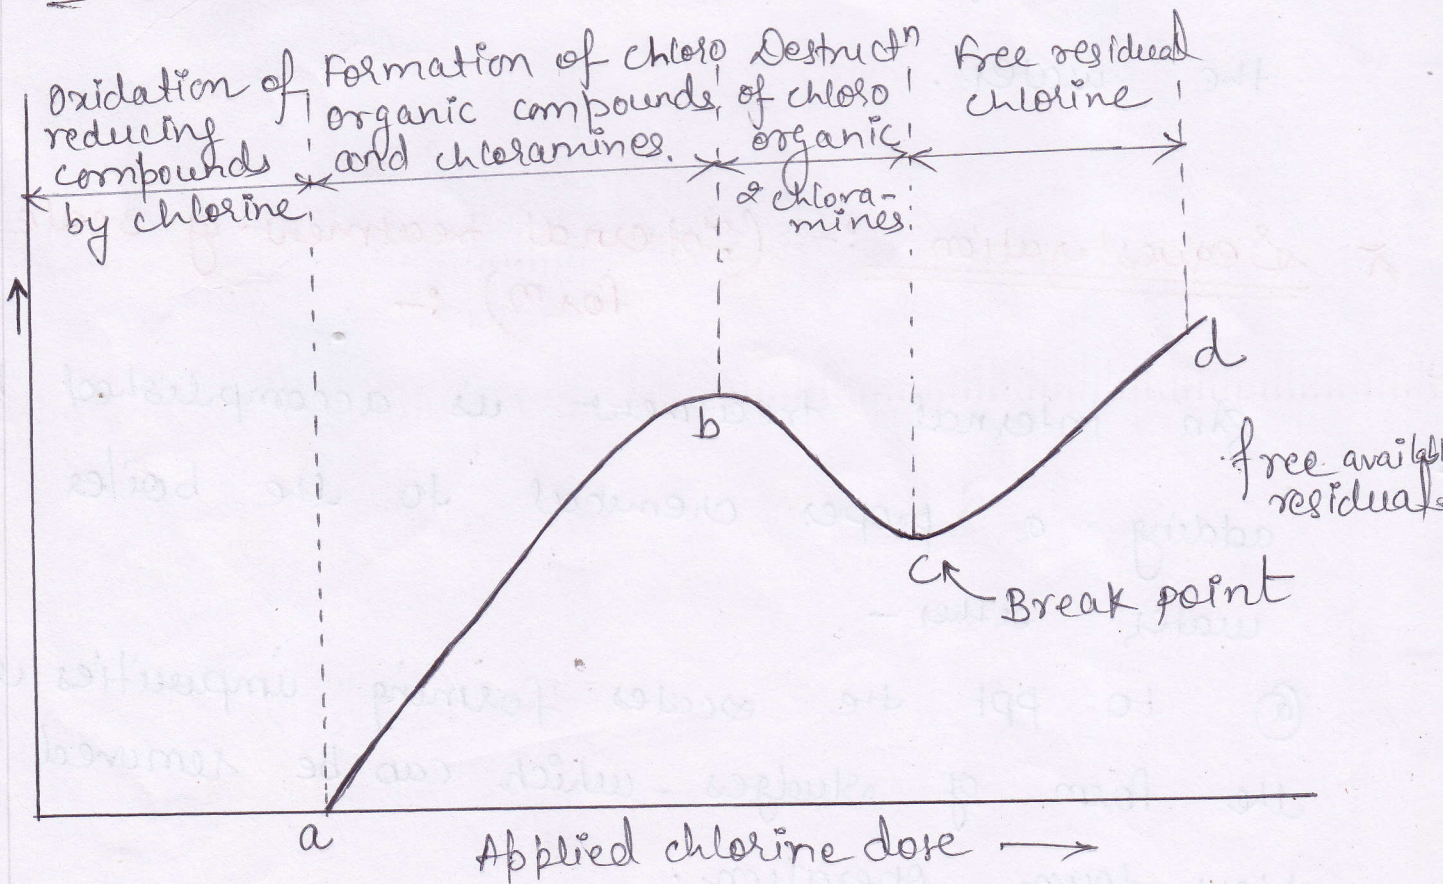 Oxidation of
reducing
compounds
by chlorine
Formation of chloro
organic compounds
and chloramines.
Destructⁿ
of chloro
organic
& chlora-
mines.
Free residual
chlorine
b
d
free availabl
residuals
c
Break point
a
Applied chlorine dose